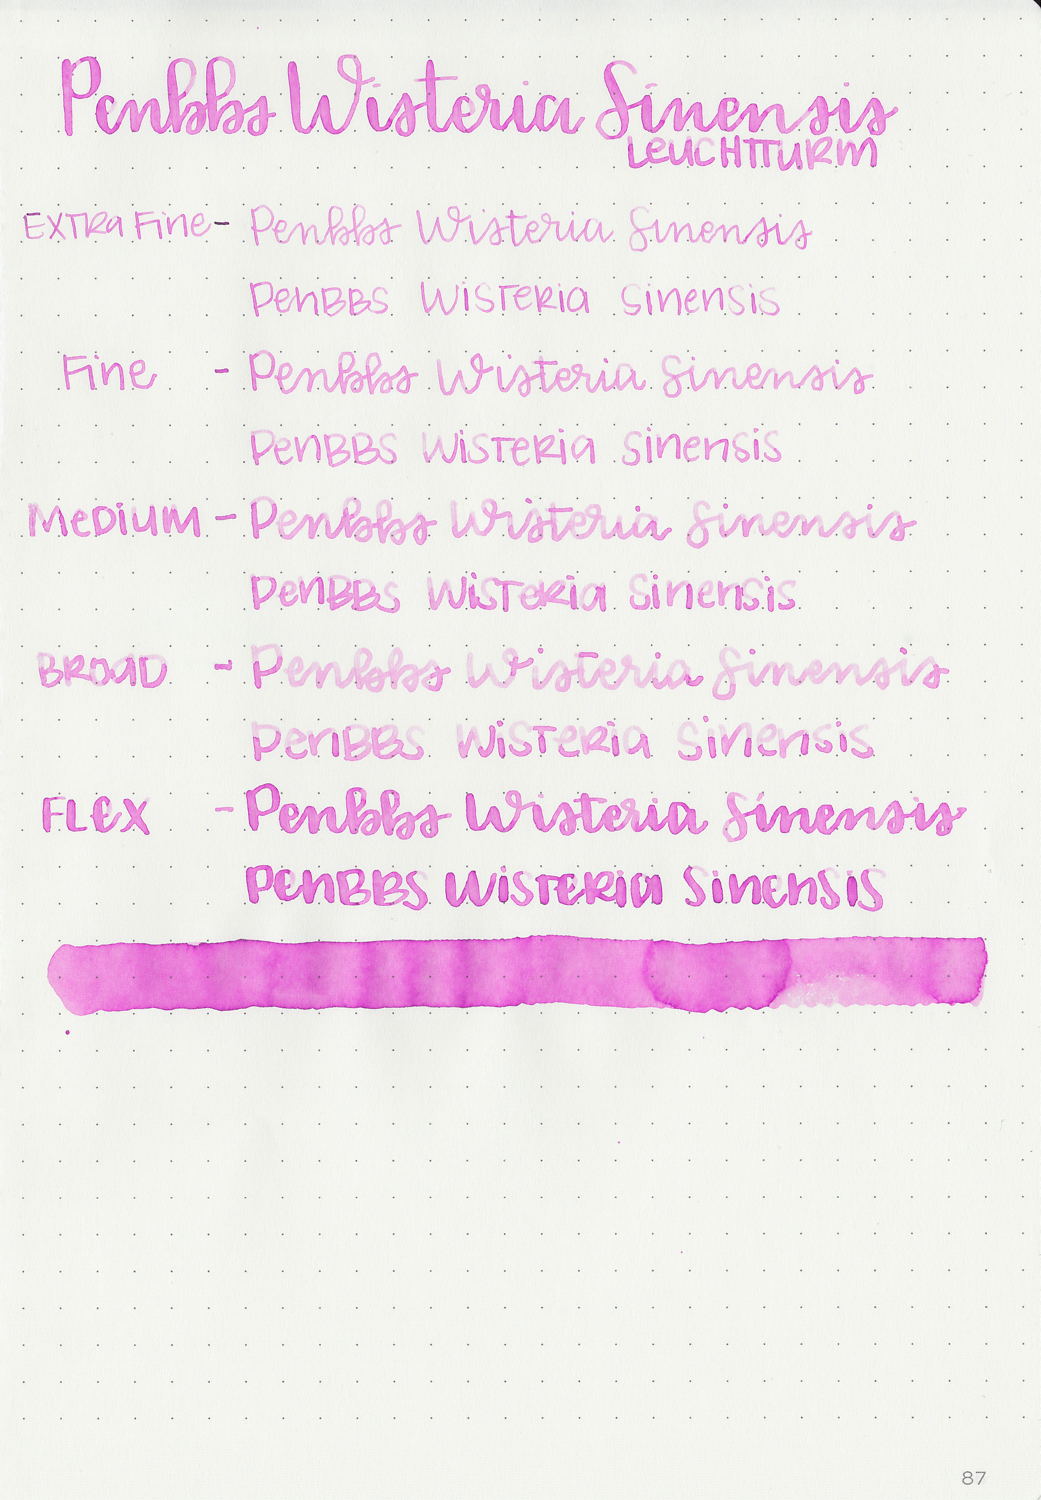 Penbbs Wisteria Sinensis
LEUCHTTURM
EXTRA FINE - Penbbs Wisteria Sinensis
PENBBS WISTERIA SINENSIS
FINE - Penbbs Wisteria Sinensis
PENBBS WISTERIA SINENSIS
MEDIUM - Penbbs Wisteria Sinensis
PENBBS WISTERIA SINENSIS
BROAD - Penbbs Wisteria Sinensis
PENBBS WISTERIA SINENSIS
FLEX - Penbbs Wisteria Sinensis
PENBBS WISTERIA SINENSIS
87